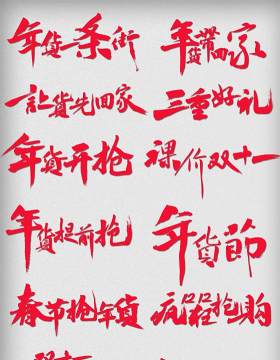 年货一条街
年货带回家
让货先回家
三重好礼
年货开抢
裸价双十一
年货提前抢
年貨節
春节抢年貨
疯抢购